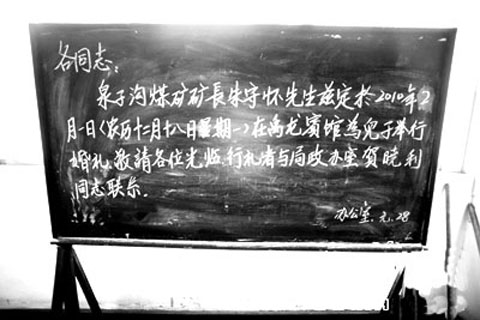 各同志:
泉子沟煤矿矿長朱守怀先生兹定於2010年2
月一日(农历十二月十八日星期一)在禹龙賓馆為兒子举行
婚礼,敬請各位光临,行礼者与局政办室贺晓利
同志联系.
办公室.元.28